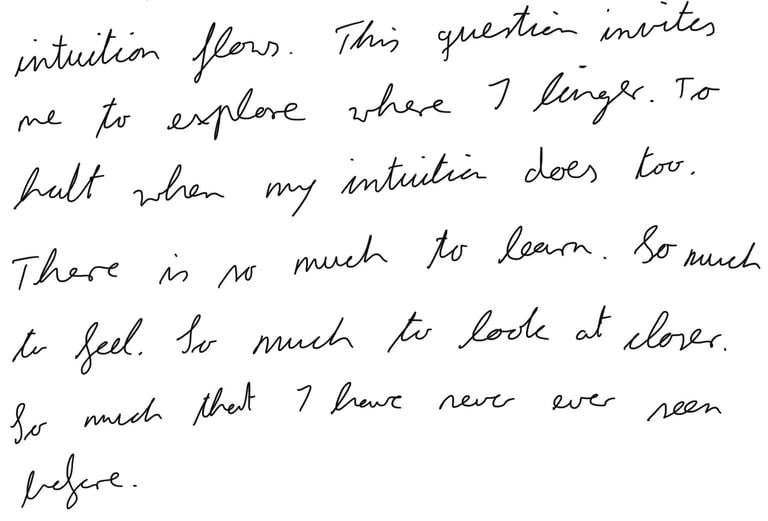 intuition flows. This question invites
me to explore where I linger. To
halt when my intuition does too.
There is so much to learn. So much
to feel. So much to look at closer.
So much that I have never ever seen
before.